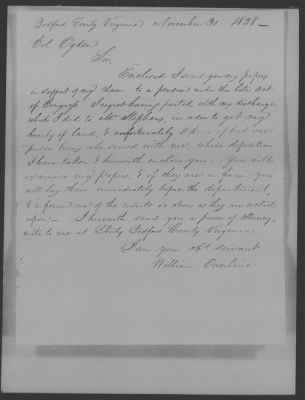 Bedford County Virginia November 30 1828 —
Col Ogden
Sir,
Enclosed I send you my papers
in support of my claim to a pension under the late act
of Congress I regret having parted with my discharge
which I did to Mr Stephens, in order to get my
bounty of land, & unfortunately I know of but one
person living who served with me, whose deposition
I have taken & herewith enclose you. You will
examine my papers, & if they are in form you
will lay them immediately before the department,
& inform me of the result as soon as they are acted
upon. I herewith send you a power of attorney,
write to me at Liberty Bedford County Virginia
I am your obt. servant
William